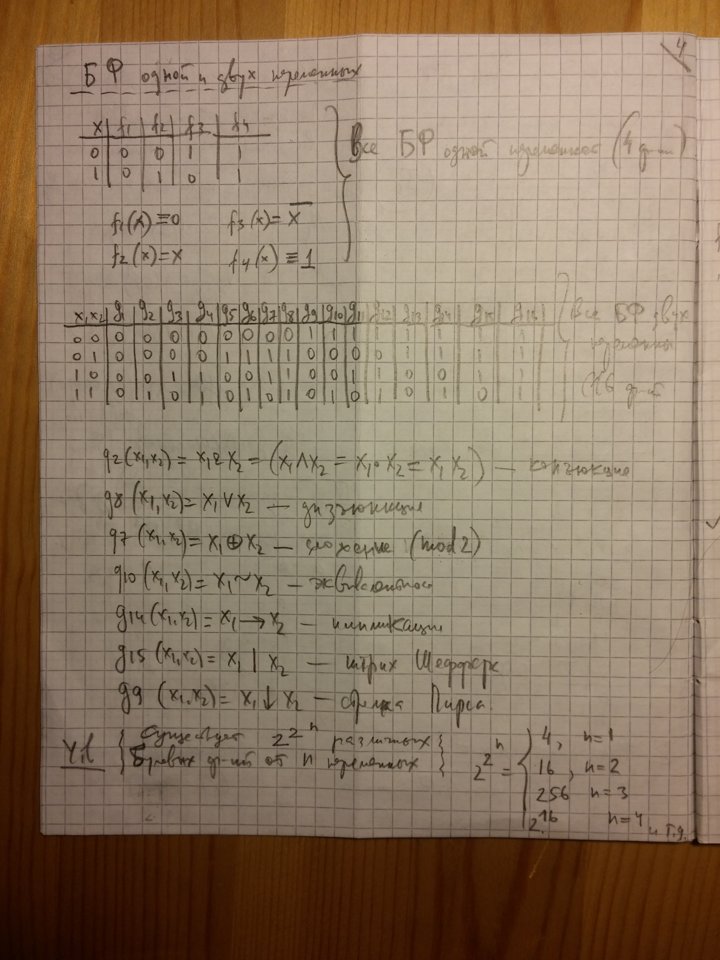 4
БФ одной и двух переменных
x f1 f2 f3 f4
0 0 0 1 1
1 0 1 0 1
все БФ одной переменной (4 ф-ии)
f1(x)≡0 f3(x)=x̅
f2(x)=x f4(x)≡1
x1 x2 g1 g2 g3 g4 g5 g6 g7 g8 g9 g10 g11 g12 g13 g14 g15 g16
0 0 0 0 0 0 0 0 0 0 1 1 1 1 1 1 1 1
0 1 0 0 0 0 1 1 1 1 0 0 0 0 1 1 1 1
1 0 0 0 1 1 0 0 1 1 0 0 1 1 0 0 1 1
1 1 0 1 0 1 0 1 0 1 0 1 0 1 0 1 0 1
все БФ двух
переменных
(16 ф-ий
g2(x1,x2)=x1&x2=(x1∧x2=x1·x2=x1x2) — конъюкция
g8(x1,x2)=x1∨x2 — дизъюнкция
g7(x1,x2)=x1⊕x2 — сложение (mod2)
g10(x1,x2)=x1~x2 — эквивалентность
g14(x1,x2)=x1→x2 — импликация
g15(x1,x2)=x1|x2 — штрих Шеффера
g9(x1,x2)=x1↓x2 — стрелка Пирса
Существует 2^2^n различных
Утв Булевых ф-ий от n переменных
2^2^n = 4, n=1
16, n=2
256 n=3
2^16 n=4
и т.д.